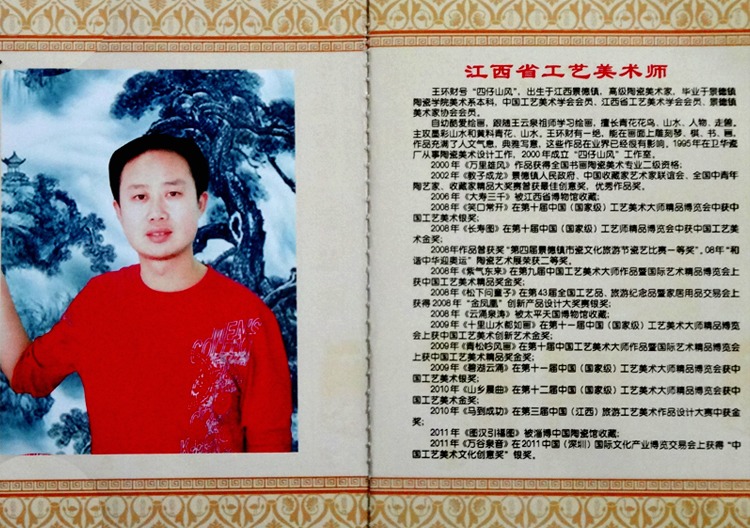 江西省工艺美术师
王环财号“四仔山风”，出生于江西景德镇，高级陶瓷美术家，毕业于景德镇
陶瓷学院美术系本科，中国工艺美术学会会员，江西省工艺美术学会会员，景德镇
美术家协会会员。
自幼酷爱绘画，跟随王云泉祖师学习绘画，擅长青花花鸟、山水、人物、走兽。
主攻墨彩山水和黄料青花、山水。王环财有一绝，能在画面上雕刻琴、棋、书、画，
作品充满了人文气息，典雅写意，这些作品在业界已经很有影响。1995年在卫华瓷
厂从事陶瓷美术设计工作，2000年成立“四仔山风”工作室。
2000年《万里雄风》作品获得全国书画陶瓷美术专业二级资格；
2002年《教子成龙》景德镇人民政府、中国收藏家艺术家联谊会、全国中青年
陶艺家、收藏家精品大奖赛曾获最佳创意奖，优秀作品奖。
2006年《大寿三千》被江西省博物馆收藏；
2008年《笑口常开》在第十届中国（国家级）工艺美术大师精品博览会上获中
国工艺美术银奖；
2008年《长寿图》在第十届中国（国家级）工艺师精品博览会上获中国工艺美
术金奖；
2008年作品曾获奖“第四届景德镇市瓷文化旅游节瓷艺比赛一等奖”。08年“和
谐中华迎奥运”陶瓷艺术展荣获二等奖。
2008年《紫气东来》在第九届中国工艺美术大师作品暨国际艺术精品博览会上
获中国工艺美术精品奖金奖；
2008年《松下问童子》在第43届全国工艺品、旅游纪念品暨家居用品交易会上
获得2008年“金凤凰”创新产品设计大奖赛银奖；
2008年《云涌泉涛》被太平天国博物馆收藏；
2009年《十里山水都如画》在第十一届中国（国家级）工艺美术大师精品博览
会上获中国工艺美术创新艺术金奖；
2009年《青松吟风画》在第十届中国工艺美术大师作品暨国际艺术精品博览会
上获中国工艺美术精品奖金奖；
2009年《碧湖云涌》在第十一届中国（国家级）工艺美术大师精品博览会获中
国工艺美术银奖；
2010年《山乡晨曲》在第十二届中国（国家级）工艺美术大师精品博览会获中
国工艺美术金奖；
2010年《马到成功》在第三届中国（江西）旅游工艺美术作品设计大赛中获金
奖；
2011年《图汉引福图》被淄博中国陶瓷馆收藏；
2011年《万谷泉音》在2011中国（深圳）国际文化产业博览交易会上获得“中
国工艺美术文化创意奖”银奖。